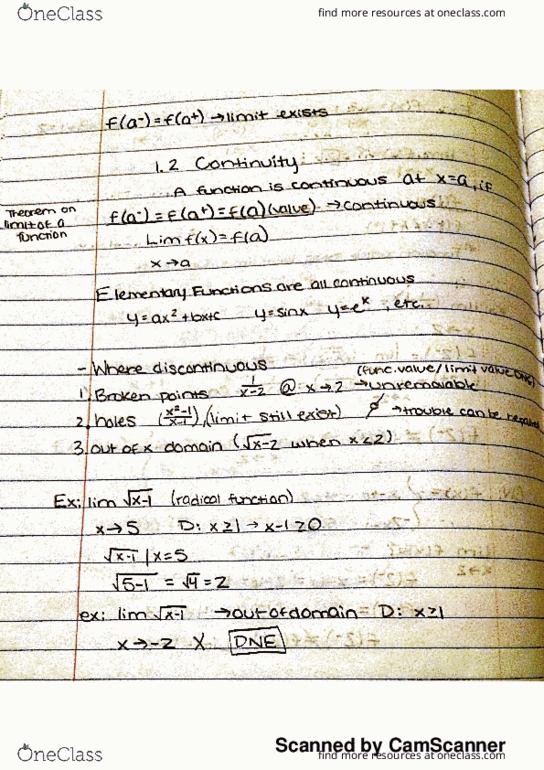 OneClass
find more resources at oneclass.com
f(a⁻)=f(a⁺) →limit exists
1.2 Continuity
A function is continuous at x=a, if
Theorem on
limit of a
function
f(a⁻)=f(a⁺)=f(a)(value) →continuous
Lim f(x)=f(a)
x→a
Elementary Functions are all continuous
y=ax²+bx+c y=sinx y=eˣ, etc.
- Where discontinuous
(func.value/limit value DNE)
1. Broken points 1/(x-2) @ x→2 →unremovable
2. holes (x²-1/x-1), (limit still exist) →trouble can be
3. out of x domain (√x-2 when x<2)
Ex: lim √x-1 (radical function)
x→5 D: x≥1 → x-1≥0
√x-1 | x=5
√5-1 = √4 = 2
ex: lim √x-1 →out of domain D: x≥1
x→-2 X DNE
Scanned by CamScanner
OneClass
find more resources at oneclass.com